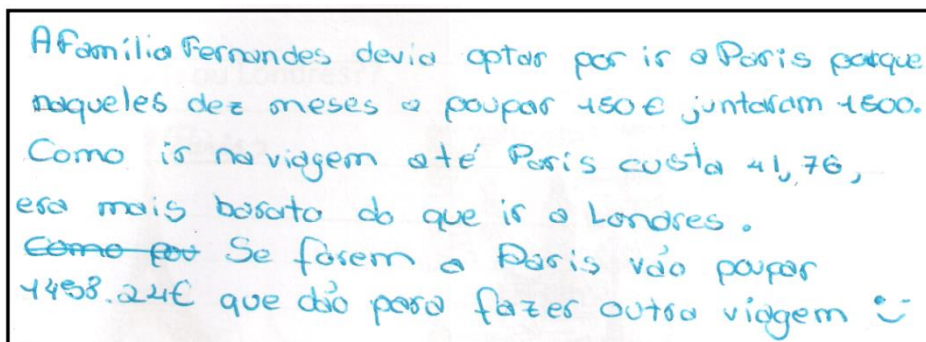 A Família Fernandes devia optar por ir a Paris porque
naqueles dez meses a poupar 150€ juntaram 1500.
Como ir na viagem até Paris custa 41,76,
era mais barato do que ir a Londres.
Como pou Se forem a Paris vão poupar
1458.24€ que dão para fazer outra viagem :)